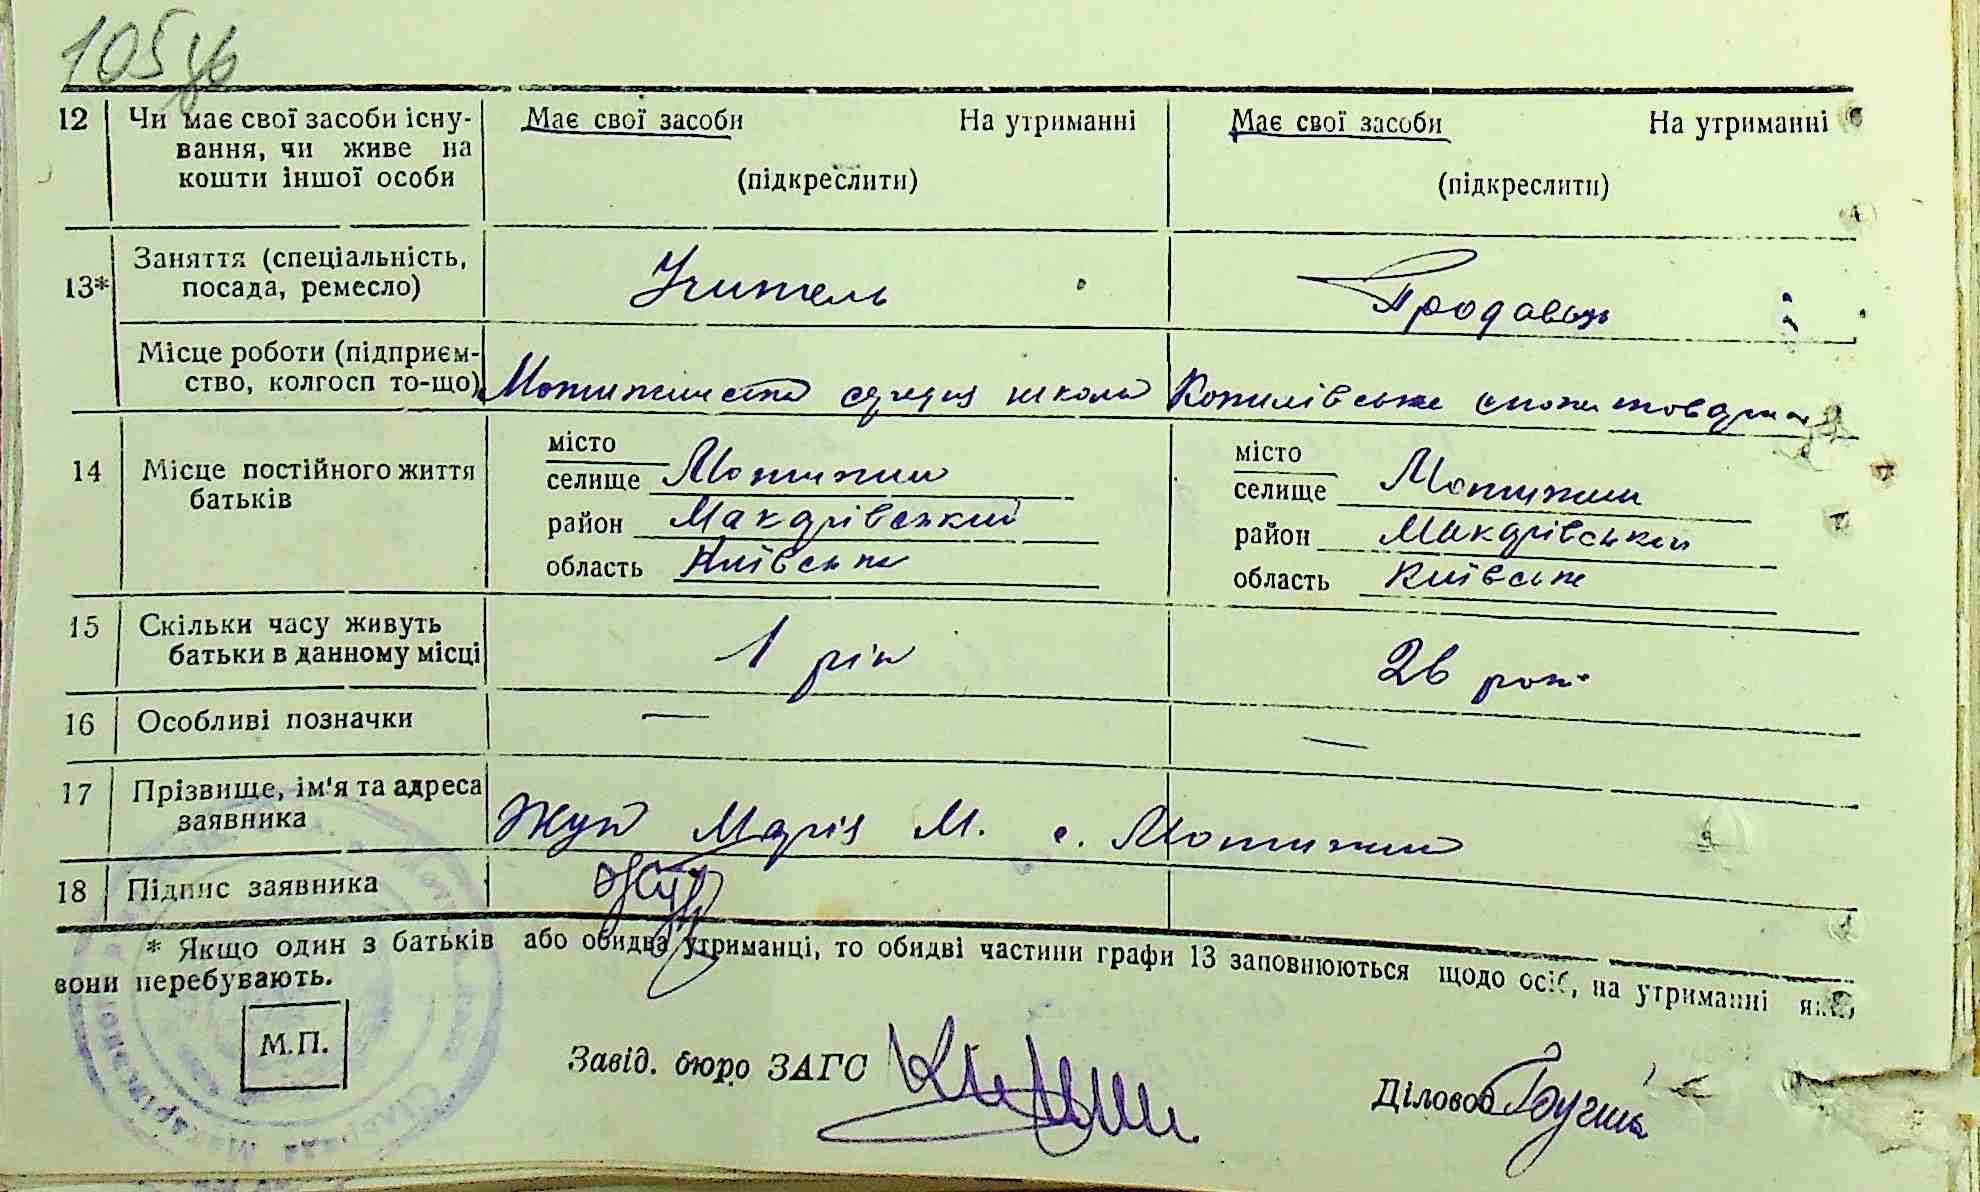 105
12 Чи має свої засоби існу- Має свої засоби На утриманні Має свої засоби На утриманні
вання, чи живе на
кошти іншої особи (підкреслити) (підкреслити)
13* Заняття (спеціальність, Учитель Продавець
посада, ремесло)
Місце роботи (підприєм-
ство, колгосп то-що) Мотижинська середня школа Копилівське
14 Місце постійного життя місто місто
батьків селище Мотижин селище Мотижин
район Макарівський район Макарівський
область Київська область Київська
15 Скільки часу живуть 1 рік 26 років
батьки в данному місці
16 Особливі позначки — —
17 Прізвище, ім'я та адреса
заявника Жук Марія М. с. Мотижин
18 Підпис заявника
* Якщо один з батьків або обидва утриманці, то обидві частини графи 13 заповнюються щодо осіб, на утриманні яких
вони перебувають.
М.П.
Завід. бюро ЗАГС Діловод